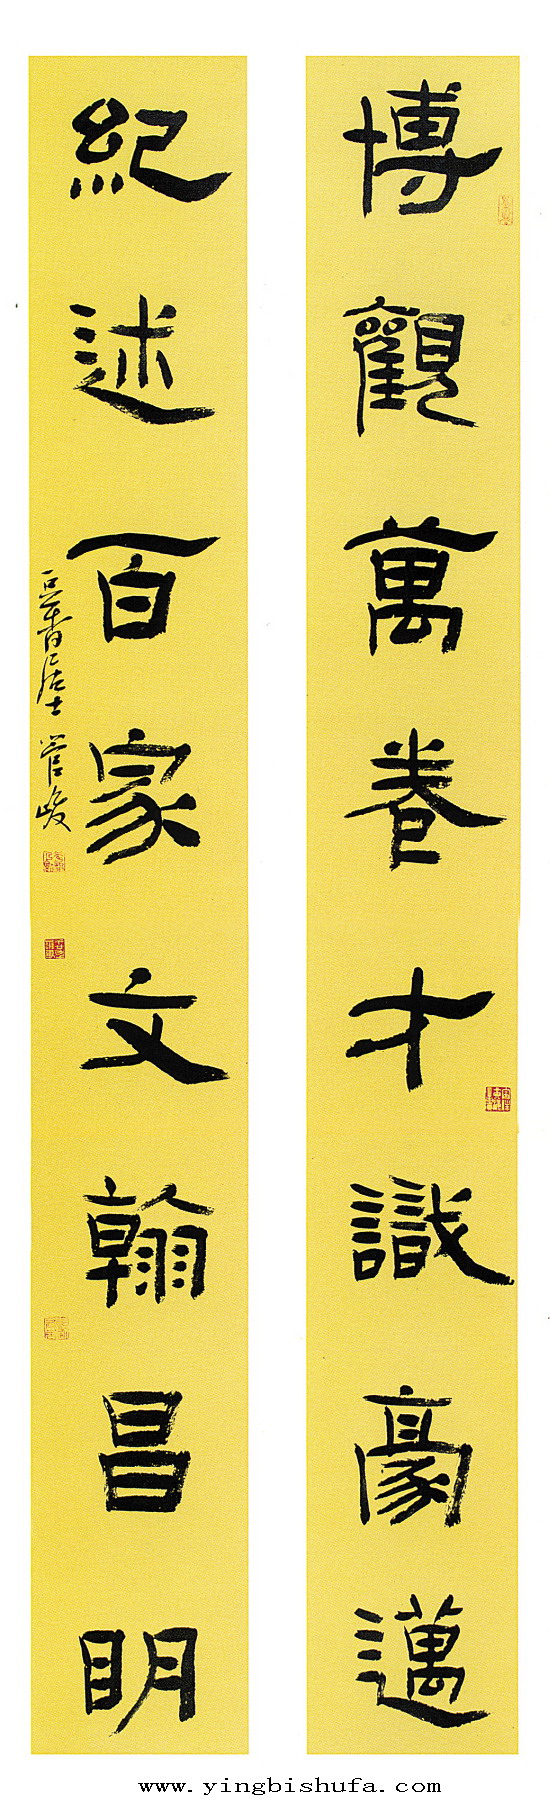 博觀萬卷才識豪邁
紀述百家文翰昌明
豆香居士 管峻
www.yingbishufa.com